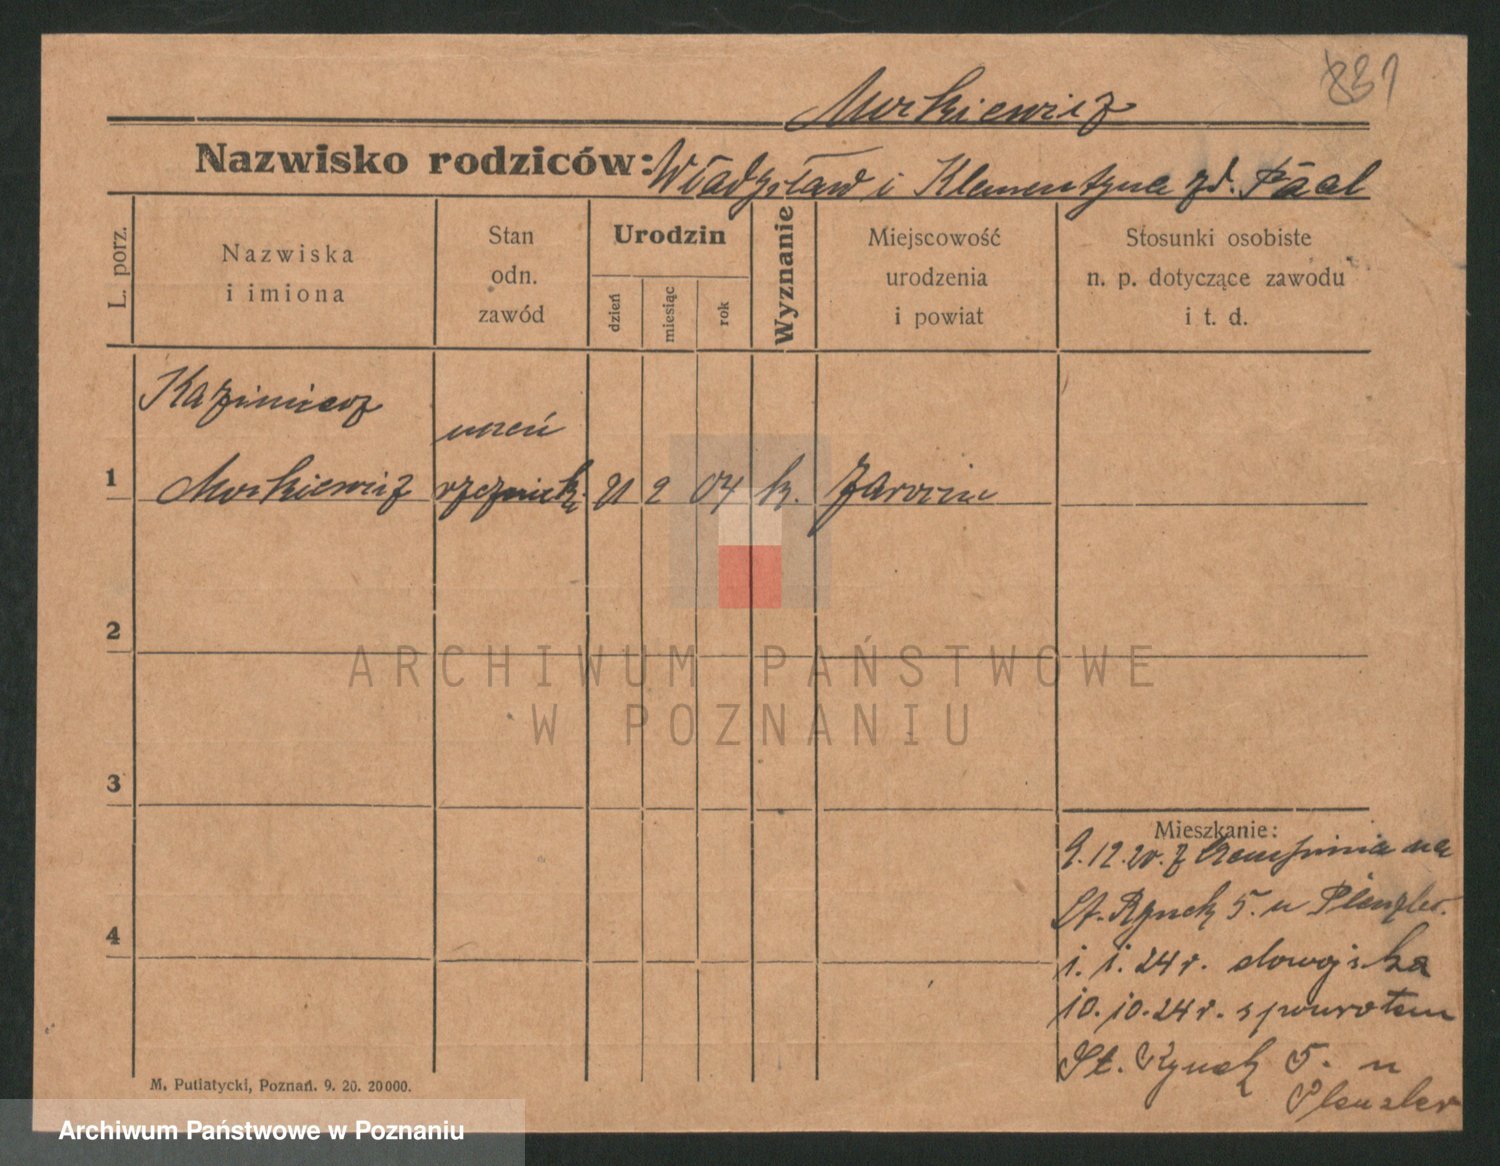 831
Murkiewicz
Nazwisko rodziców: Władysław i Klementyna zd.
L. porz.
Nazwiska
i imiona
Stan
odn.
zawód
Urodzin
dzień
miesiąc
rok
Wyznanie
Miejscowość
urodzenia
i powiat
Stosunki osobiste
n. p. dotyczące zawodu
i t. d.
Kazimierz
uczeń
1 Murkiewicz rzeźnick. 21 2 04 k.
2
ARCHIWUM PAŃSTWOWE
W POZNANIU
3
Mieszkanie:
9.12.20. z na
St. Rynek 5. u Plenzler.
4
1. 1. 24 r. do wojska
10. 10. 24 r. spowrotem
St. Rynek 5. u
Plenzler
M. Putiatycki, Poznań. 9. 20. 20000.
Archiwum Państwowe w Poznaniu